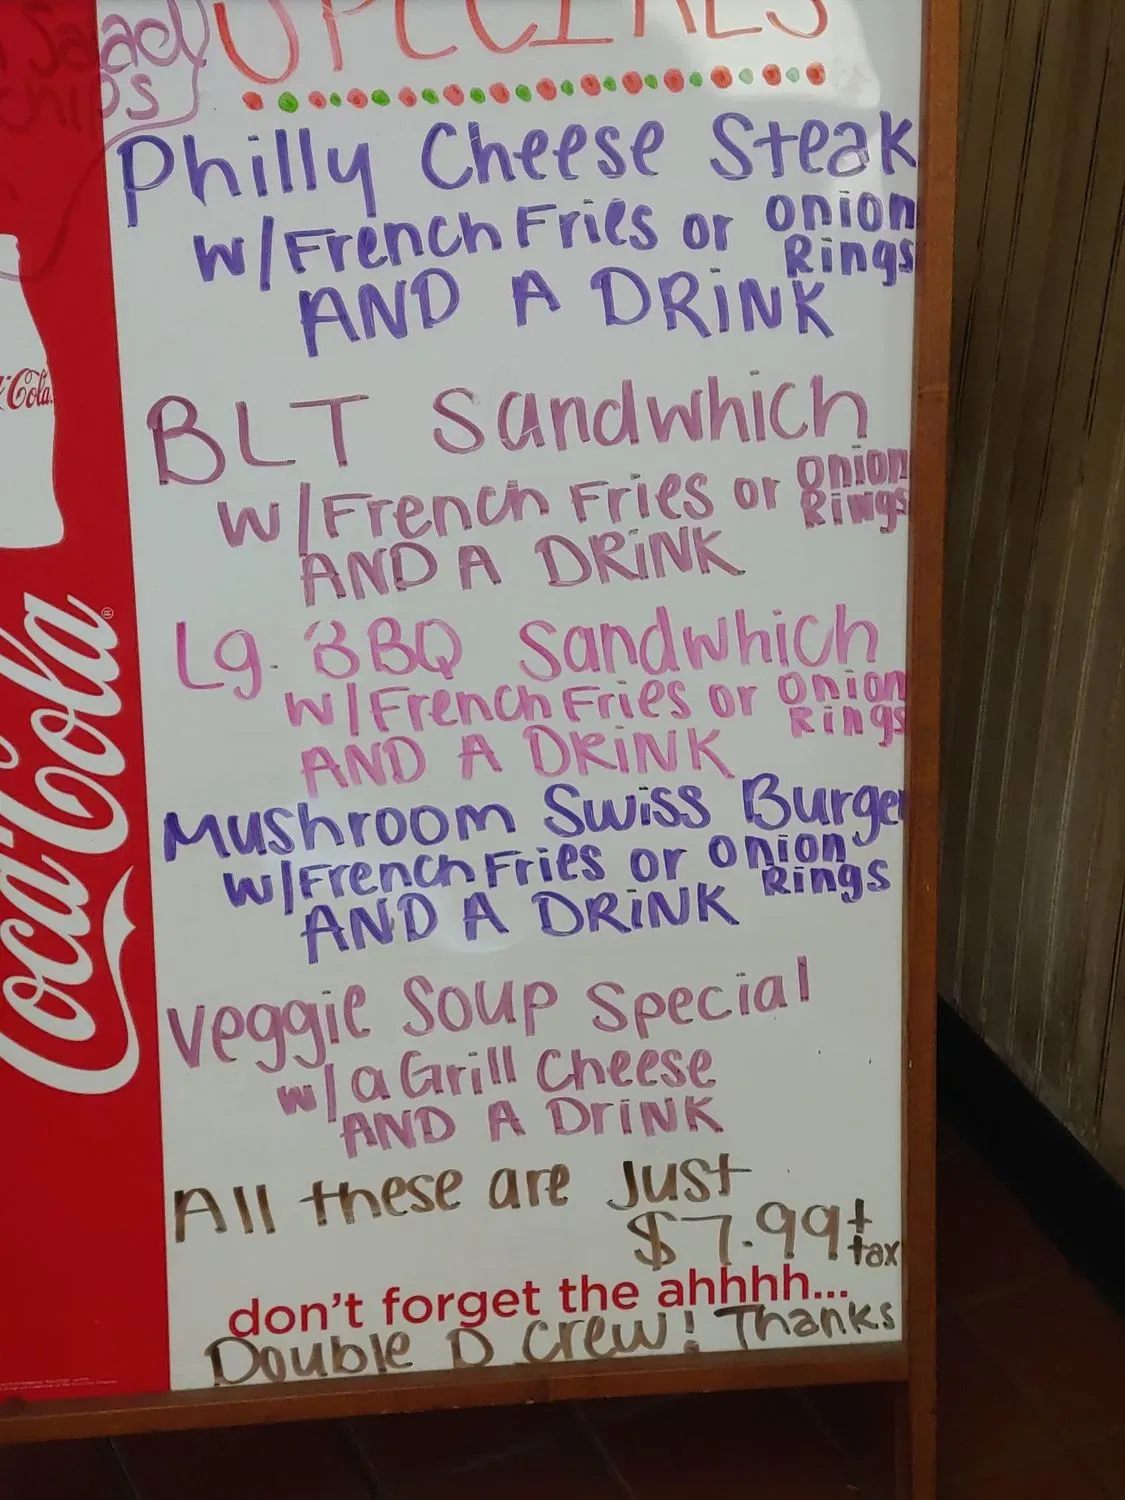 SPECIALS
Salad
chips
Philly Cheese Steak
W/French Fries or Onion Rings
AND A DRINK
BLT Sandwhich
W/French Fries or Onion Rings
AND A DRINK
Lg. BBQ Sandwhich
W/French Fries or Onion Rings
AND A DRINK
Mushroom Swiss Burger
W/French Fries or Onion Rings
AND A DRINK
Veggie Soup Special
w/a Grill Cheese
AND A DrINK
All these are Just
$7.99 + tax
don't forget the ahhhh...
Double D Crew! Thanks
Cola
Coca-Cola®